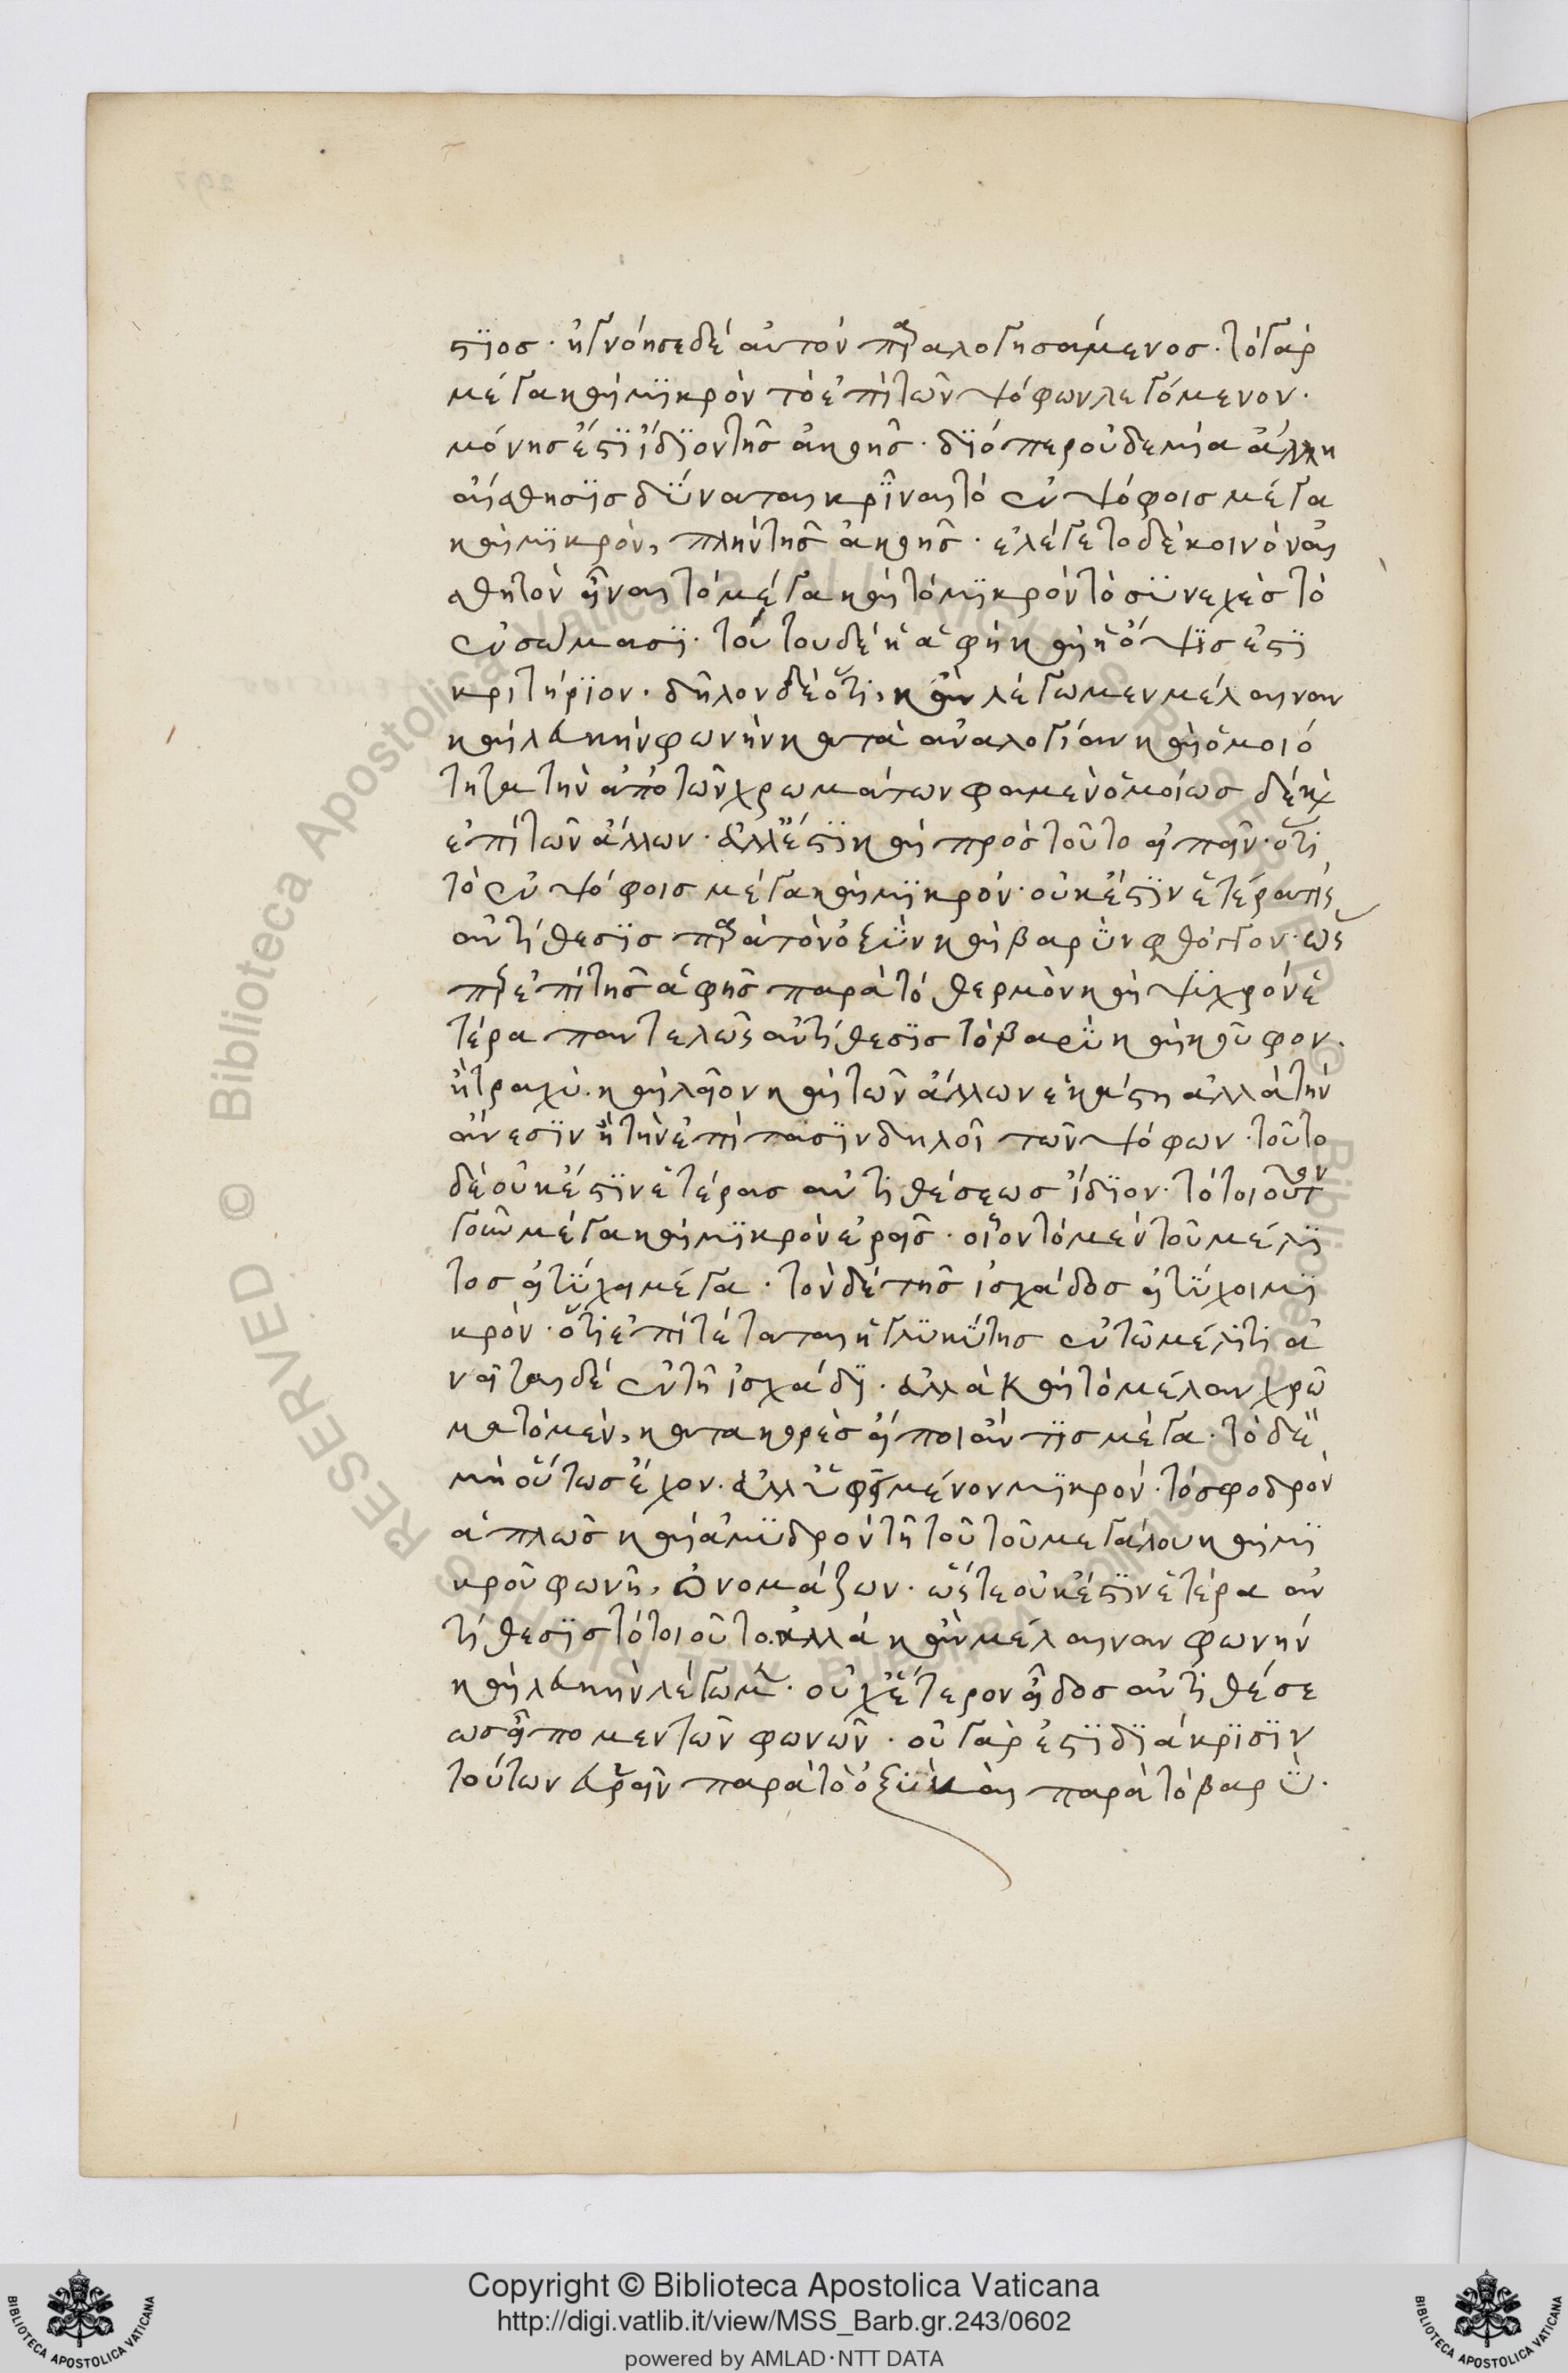 στϊος· ἠγνόησε δέ αυτον παραλογησάμενος· τό γάρ
μέγα καὶ μϊκρὸν τὸ ἐπὶ τῶν ψόφων λεγόμενον·
μόνης ἐστϊ ἴδϊον τῆς ἀκοῆς· δϊόπερ οὐδεμία ἄλλη
αἴσθησϊς δΰναται κρῖναι τὸ ἐν ψόφοις μέγα
καὶ μϊκρόν, πλήν τῆς ἀκοῆς· ἐλέγετο δὲ κοινὸν αἰ
σθητὸν εἶναι τὸ μέγα καὶ τὸ μϊκρὸν τὸ σϋνεχὲς τὸ
ἐν σώμασϊ· τούτου δέ ἡ ἁφὴ καὶ ἡ ὄψϊς ἐστϊ
κριτήρϊον· δῆλον δὲ ὅτι, κἂν λέγωμεν μέλαιναν
καὶ λευκὴν φωνὴν κατὰ ἀναλογίαν καὶ ὁμοιό
τητα τὴν ἀπὸ τῶν χρωμάτων φαμὲν ὁμοίως δέ καὶ
ἐπὶ τῶν ἄλλων· ἀλλ' ἔστϊ καὶ πρὸς τοῦτο εἰπεῖν· ὅτι
τὸ ἐν ψόφοις μέγα καὶ μϊκρόν· οὐκ ἔστϊν ἑτέρα τις
ἀντίθεσϊς παρὰ τὸν ὀξὺν καὶ βαρὺν φθόγγον· ὥς
περ ἐπὶ τῆς ἁφῆς παρὰ τὸ θερμὸν καὶ ψϊχρὸν ἑ
τέρα παντελῶς ἀντίθεσϊς τὸ βαρὺ καὶ κοῦφον·
ἢ τραχὺ· καὶ λεῖον καὶ τῶν ἄλλων ἑκάστη ἀλλὰ τὴν
ἄνεσϊν ἢ τὴν ἐπίτασϊν δηλοῖ τῶν ψόφων· τοῦτο
δὲ οὐκ ἔστϊν ἑτέρας ἀντιθέσεως ἴδϊον· τὸ τοιοῦτον
γοῦν μέγα καὶ μϊκρὸν ἐρεῖς· οἷον τὸ μὲν τοῦ μέλϊ
τος εἰ τΰχη μέγα· τὸν δέ τῆς ἰσχάδος εἰ τΰχοι μϊ
κρόν· ὅτι ἐπιτέταται ἡ γλϋκΰτης ἐν τῶ μέλιτι ἀ
νεῖται δέ ἐν τῆ ἰσχάδϊ· ἀλλὰ καὶ τὸ μέλαν χρῶ
μα τὸ μέν, κατακορὲς εἴποι ἄν τϊς μέγα· τὸ δέ
μὴ οὕτως ἔχον· ἀλλ' ὑφειμένον μϊκρόν· τὸ σφοδρὸν
ἁπλῶς καὶ ἀμϋδρὸν τῆ τοῦ τοῦ μεγάλου καὶ μϊ
κροῦ φωνῆ, ὀνομάζων· ὥστε οὐκ ἔστϊν ἑτέρα ἀν
τίθεσϊς τὸ τοιοῦτο. ἀλλὰ κἂν μέλαιναν φωνὴν
καὶ λευκὴν λέγωμεν· οὐχ ἕτερον εἶδος ἀντιθέσε
ως εἴπομεν τῶν φωνῶν· οὐ γὰρ ἔστϊ δϊάκρϊσϊν
τούτων εὑρεῖν παρὰ τὸ ὀξὺ καὶ παρὰ τὸ βαρὺ·
Copyright © Biblioteca Apostolica Vaticana
http://digi.vatlib.it/view/MSS_Barb.gr.243/0602
powered by AMLAD·NTT DATA